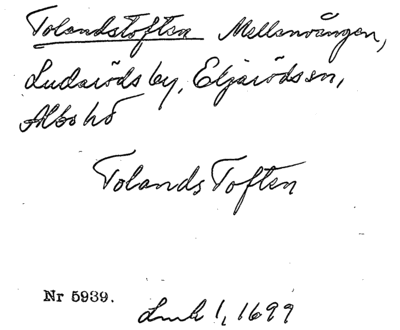 Tolandstoften Mellanvången,
Ludaröds by, Eljaröds sn,
Albo hd
Tolands Toften
Nr 5939.
Lmh 1, 1699